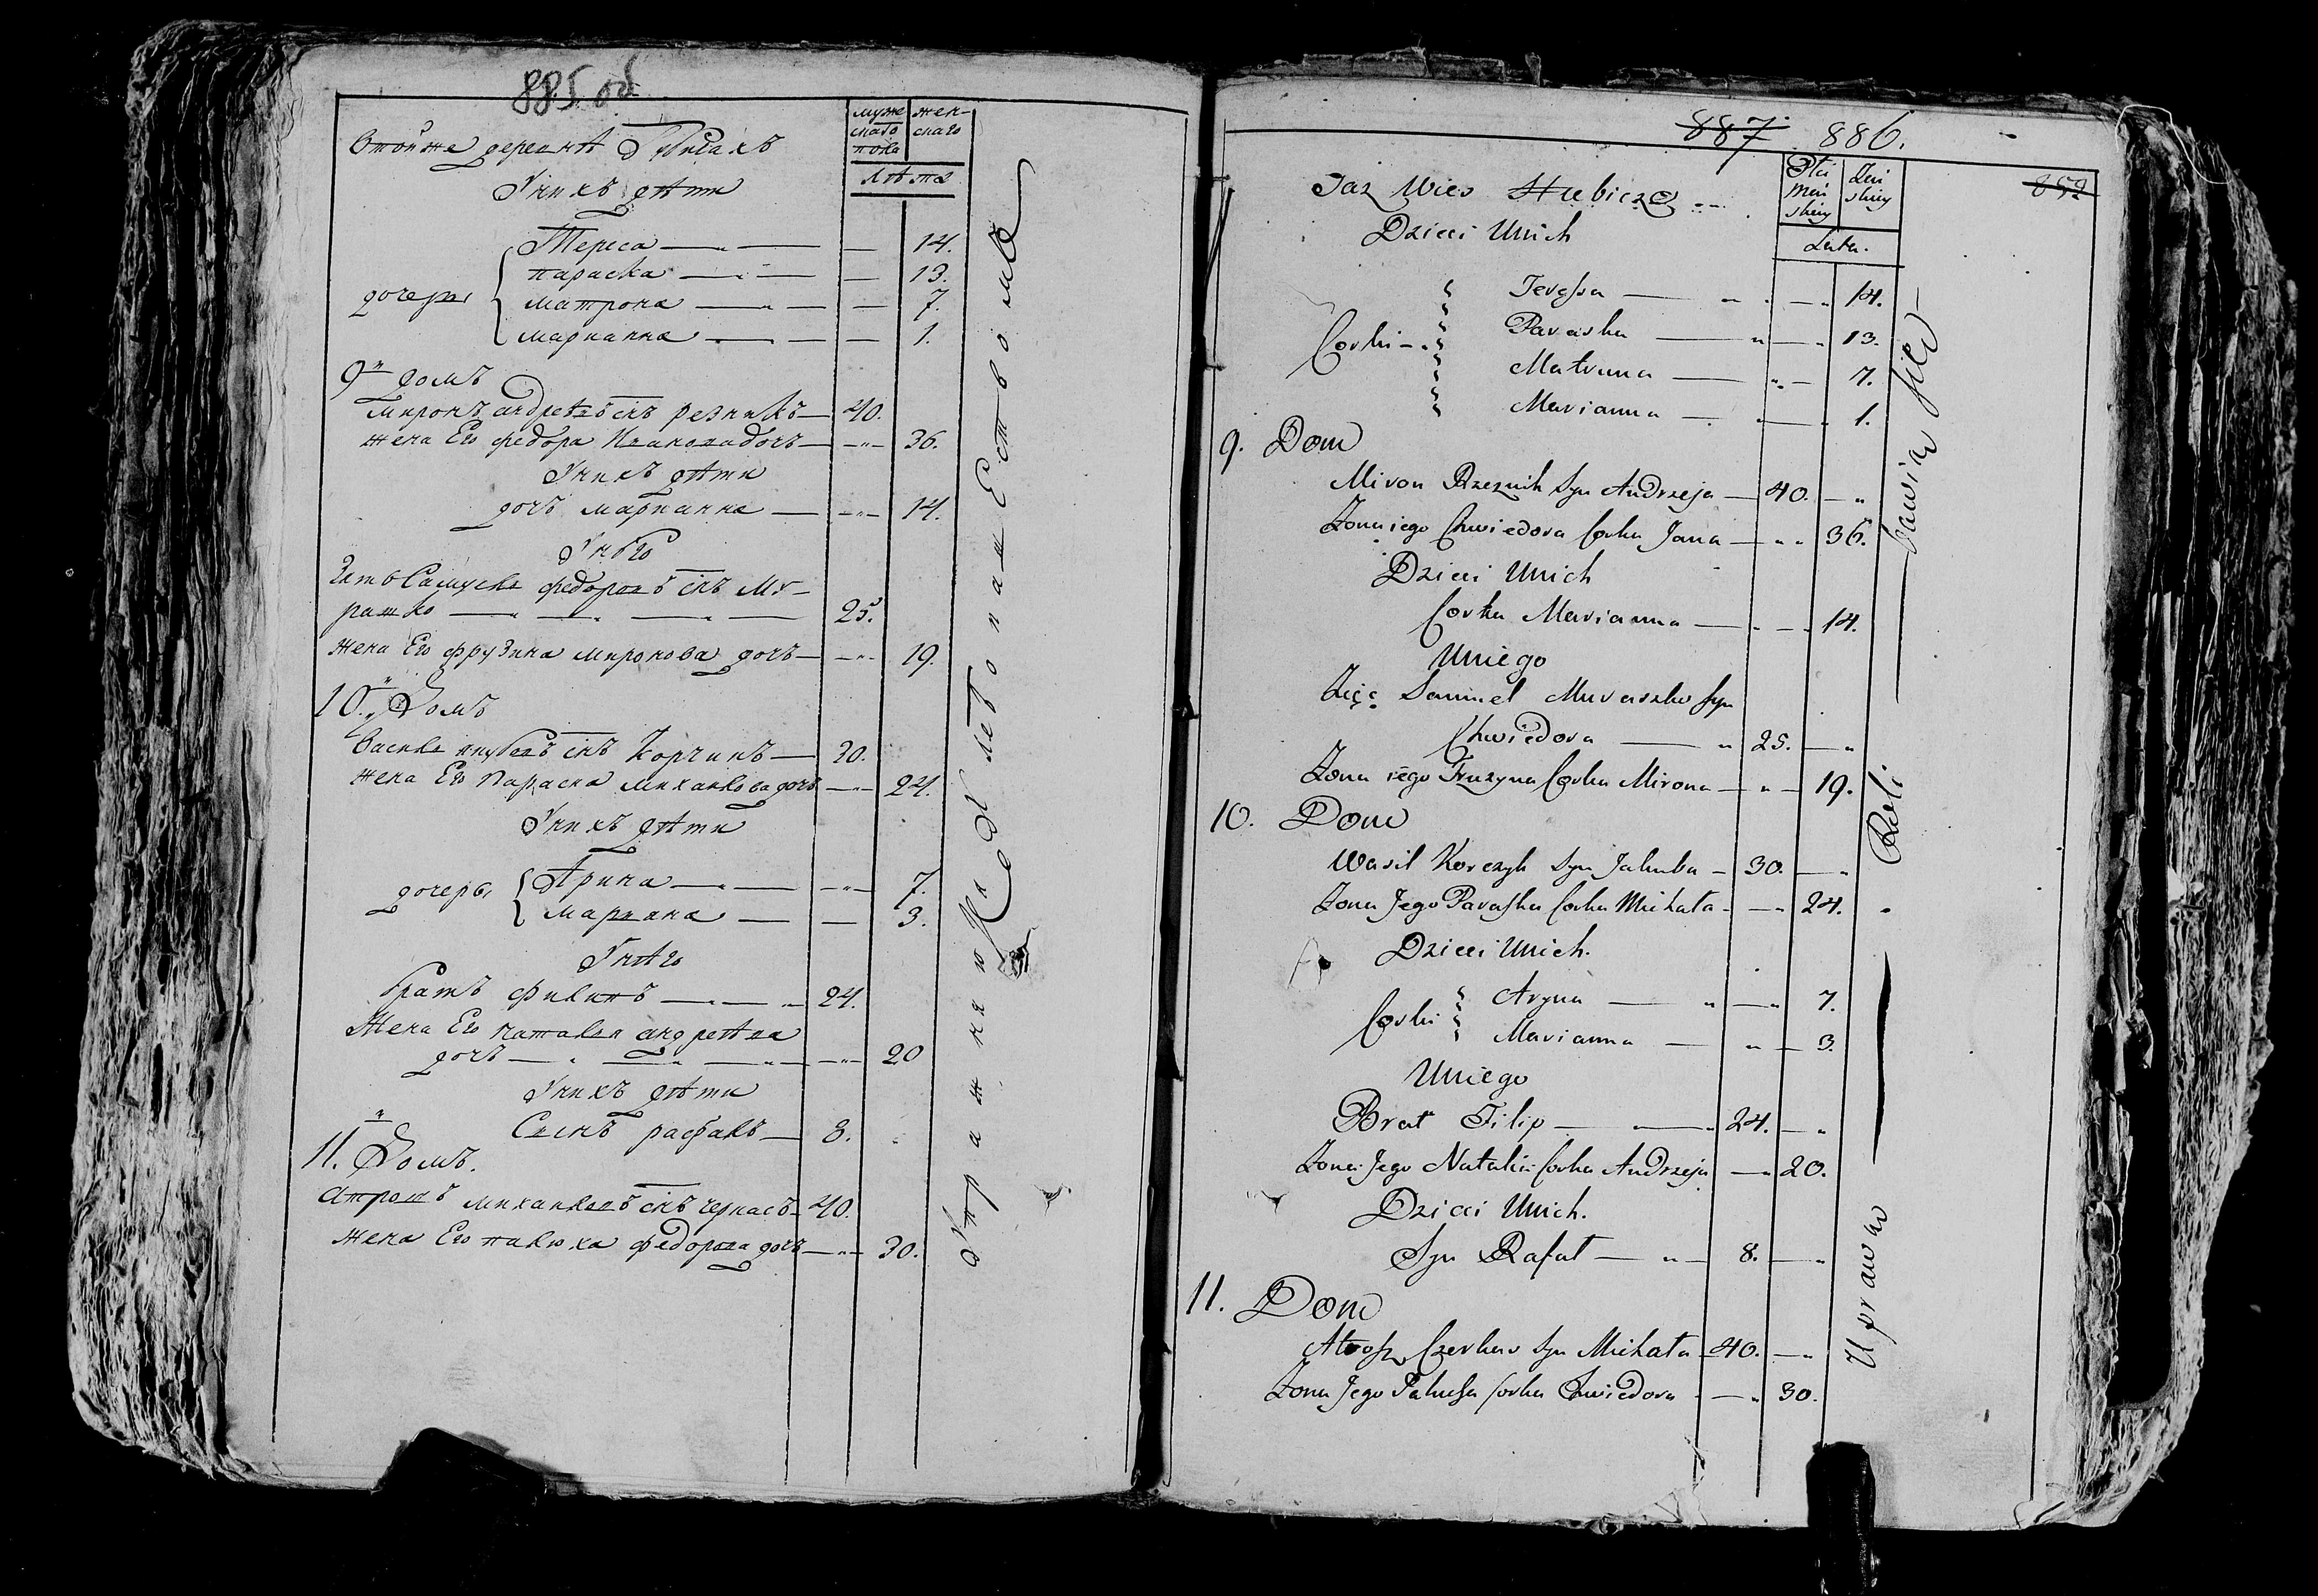 885 об
муже
скаго
пола
жен-
скаго
лѣта
Втой же деревнѣ Губичахъ
У нихъ дѣти
дочери
Тереса — — 14.
Параска — — 13.
Матрона — — 7.
Марианна — — 1.
9" домъ
Миронъ Андреевъ снъ Резникъ — 40.
жена Его Федора Иванова дочь — 36.
У нихъ дѣти
дочь Марианна — 14.
У него
Зять Самуель Федоровъ снъ Му-
рашко — 25.
жена Его Фрузина Миронова дочь — 19.
10." Домъ
Василь Якубовъ снъ Корчикъ — 30.
жена Его Параска Михайлова дочь — 24.
У нихъ дѣти
дочеры
Арина — 7.
Мариана — 3.
У него
братъ Филипъ — 24.
Жена Его Наталья Андреева
дочь — 20
У нихъ дѣти
Сынъ Рафалъ — 8.
11." Домъ.
Атрошъ Михайловъ снъ Чернасъ — 40.
жена Его Палюха Федорова дочь — 30.
887. 886.
852
Płci
Męs
skiey
Żeń
skiey
Lata.
Taz Wies Hubicze
Dzieci Unich
Corki
Teressa — 14.
Paraska — 13.
Matruna — 7.
Marianna — 1.
9. Dom
Miron Rzeznik Syn Andrzeja — 40.
Zona iego Chwiedora Corka Jana — 36.
Dzieci Unich
Corka Marianna — 14.
Uniego
Zięc Samuel Muraszko syn
Chwiedora — 25.
Zona iego Fruzyna Corka Mirona — 19.
10. Dom
Wasil Korczyk Syn Jakuba — 30.
Zona Jego Paraska Corka Michała — 24.
Dzieci Unich.
Corki
Aryna — 7.
Marianna — 3.
Uniego
Brat Filip — 24.
Zona Jego Natalia Corka Andrzeja — 20.
Dzieci Unich.
Syn Rafał — 8.
11. Dom
Atrosz Czerkas Syn Michała — 40.
Zona Jego Palusza Corka Chwiedora — 30.
Uprawą Roli bawią się